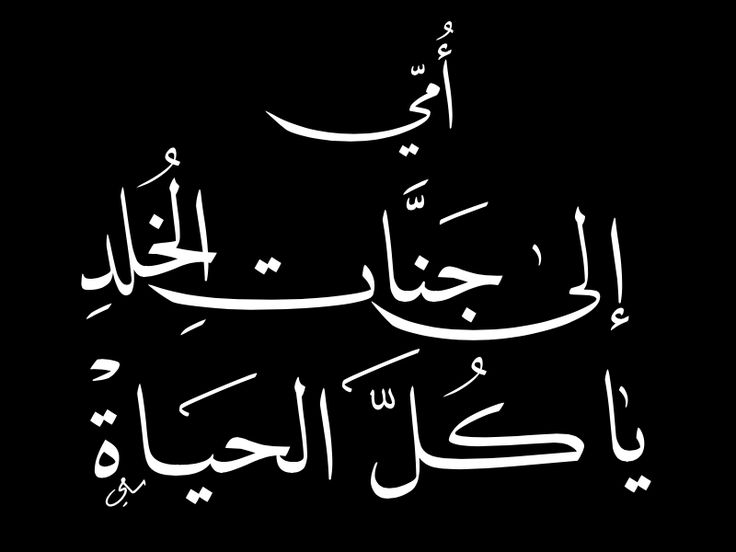 أُمّي
إلى جَنَّاتِ الخُلدِ
يا كُلَّ الحَيَاةْ